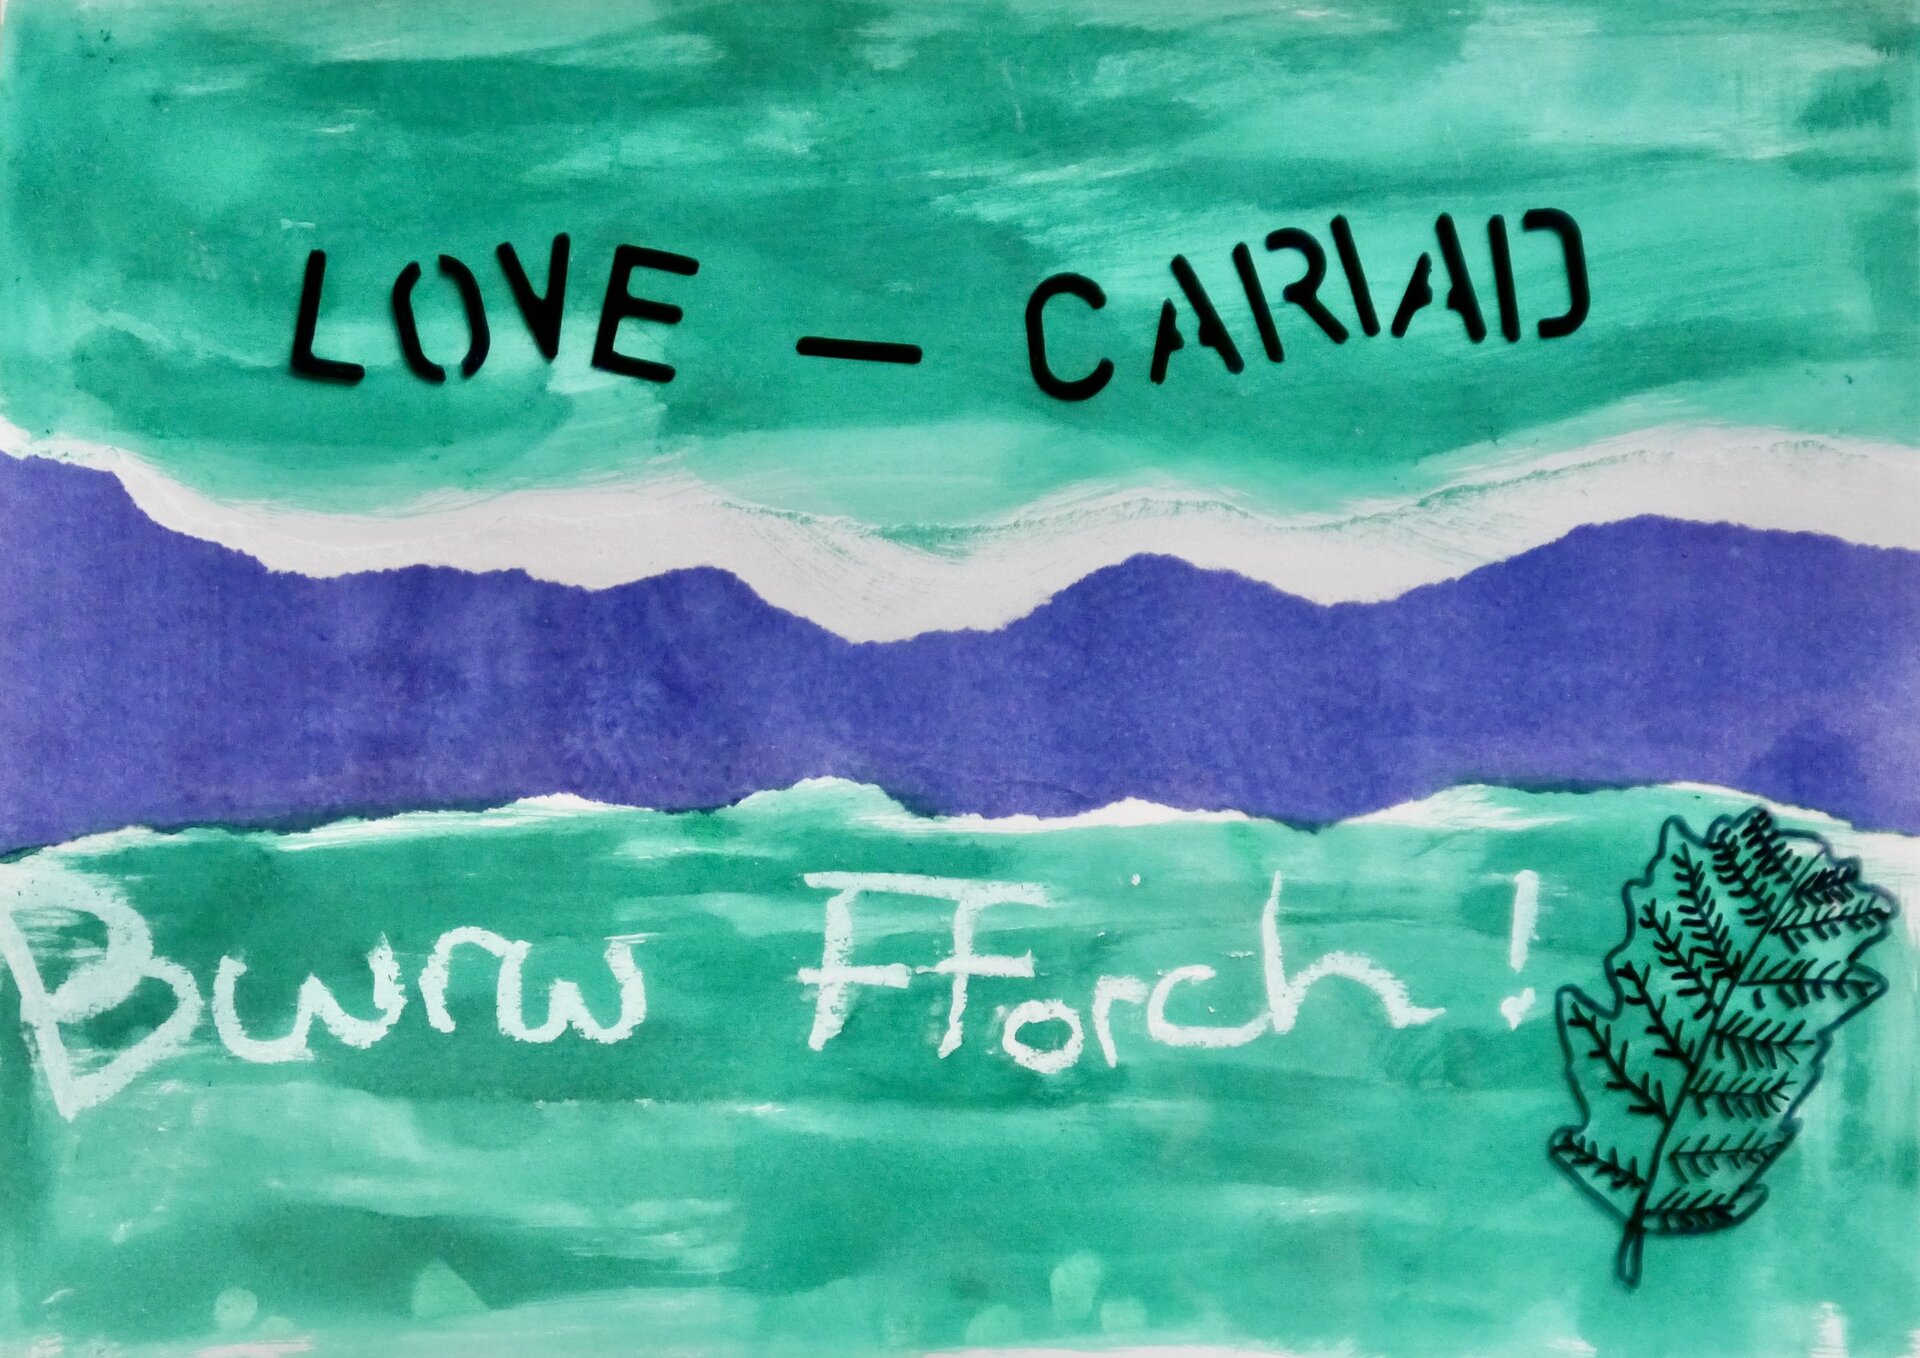 LOVE - CARIAD
Bwrw FForch!